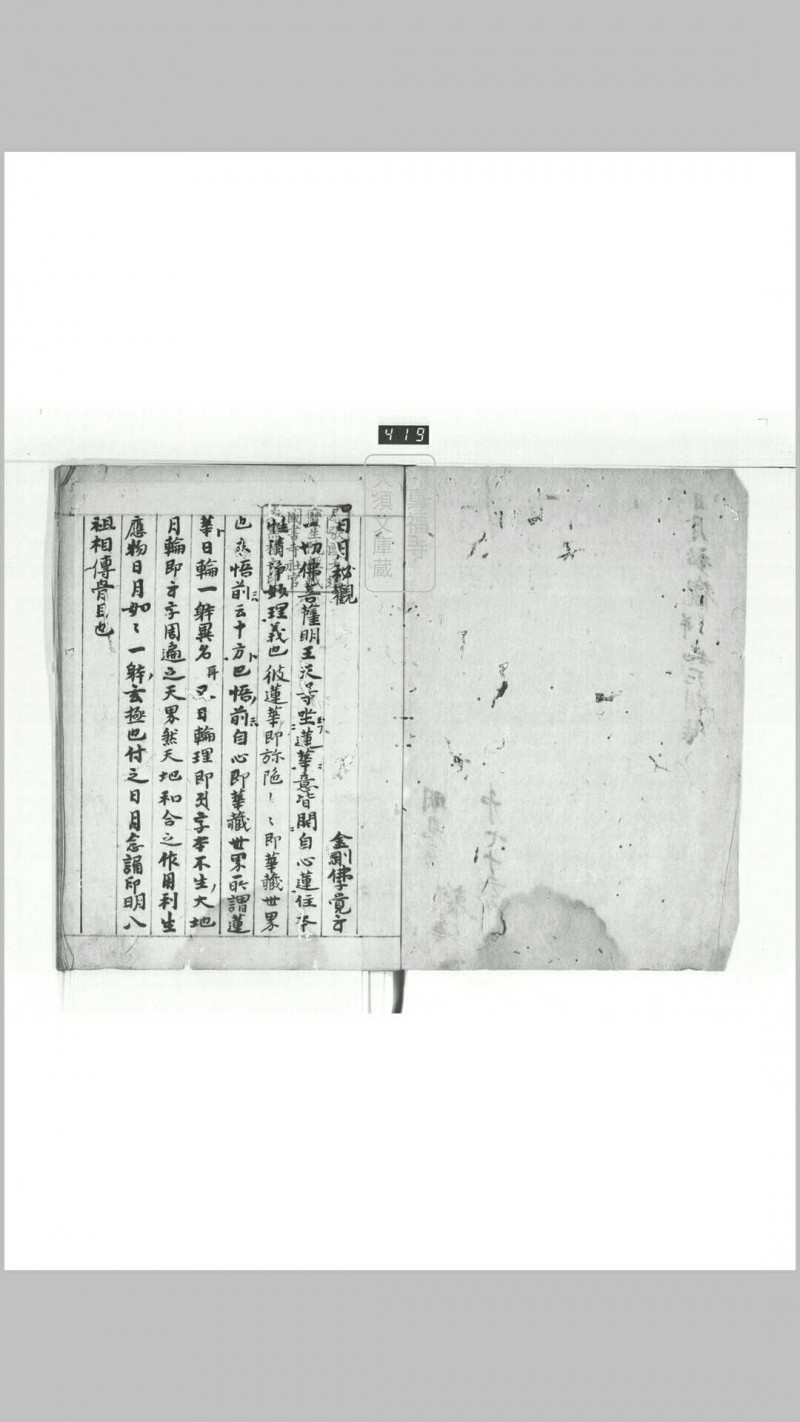 419
日月秘觀
金剛佛子覚
一切佛菩薩明王天等坐蓮華意皆開自心蓮住本
性清淨妙理義也彼蓮華即弥陀〻〻即華藏世界
也 悟前云十方 悟前自心即華藏世界所謂蓮
華日輪一躰異名耳 日輪理即 字本不生大地
月輪即 字周遍之天界然天地和合之作用利生
應物日月如〻一躰玄極也付之日月念誦印明八
祖相傳骨目也
真福寺
大須文庫蔵